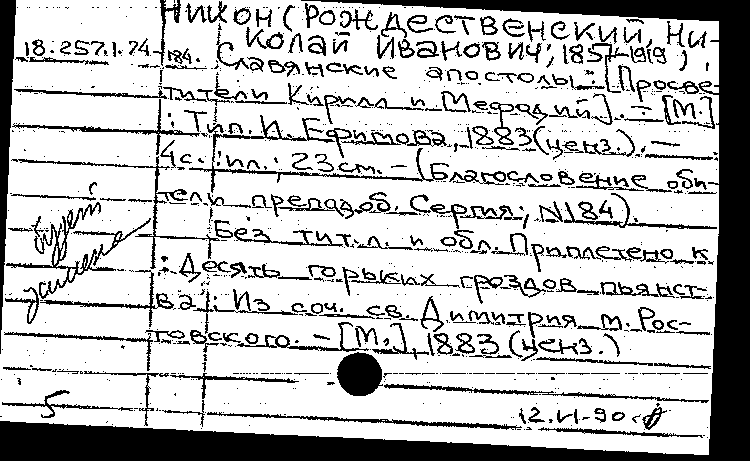 Никон (Рождественский, Ни-
колай Иванович; 1851-1919)
18.257.1.74-184.
Славянские апостолы : [Просве-
тители Кирилл и Мефодий]. - [М.]
: Тип. И. Ефимова, 1883 (ценз.). -
4с. : ил.; 23 см. - (Благословение оби-
тели преподоб. Сергия; N184).
Без тит.л. и обл. Приплетено к
: Десять горьких гроздов пьянст-
ва : Из соч. св. Димитрия м. Рос-
товского. - [М.], 1883 (ценз.)
будет
замена
5
12.VI-90